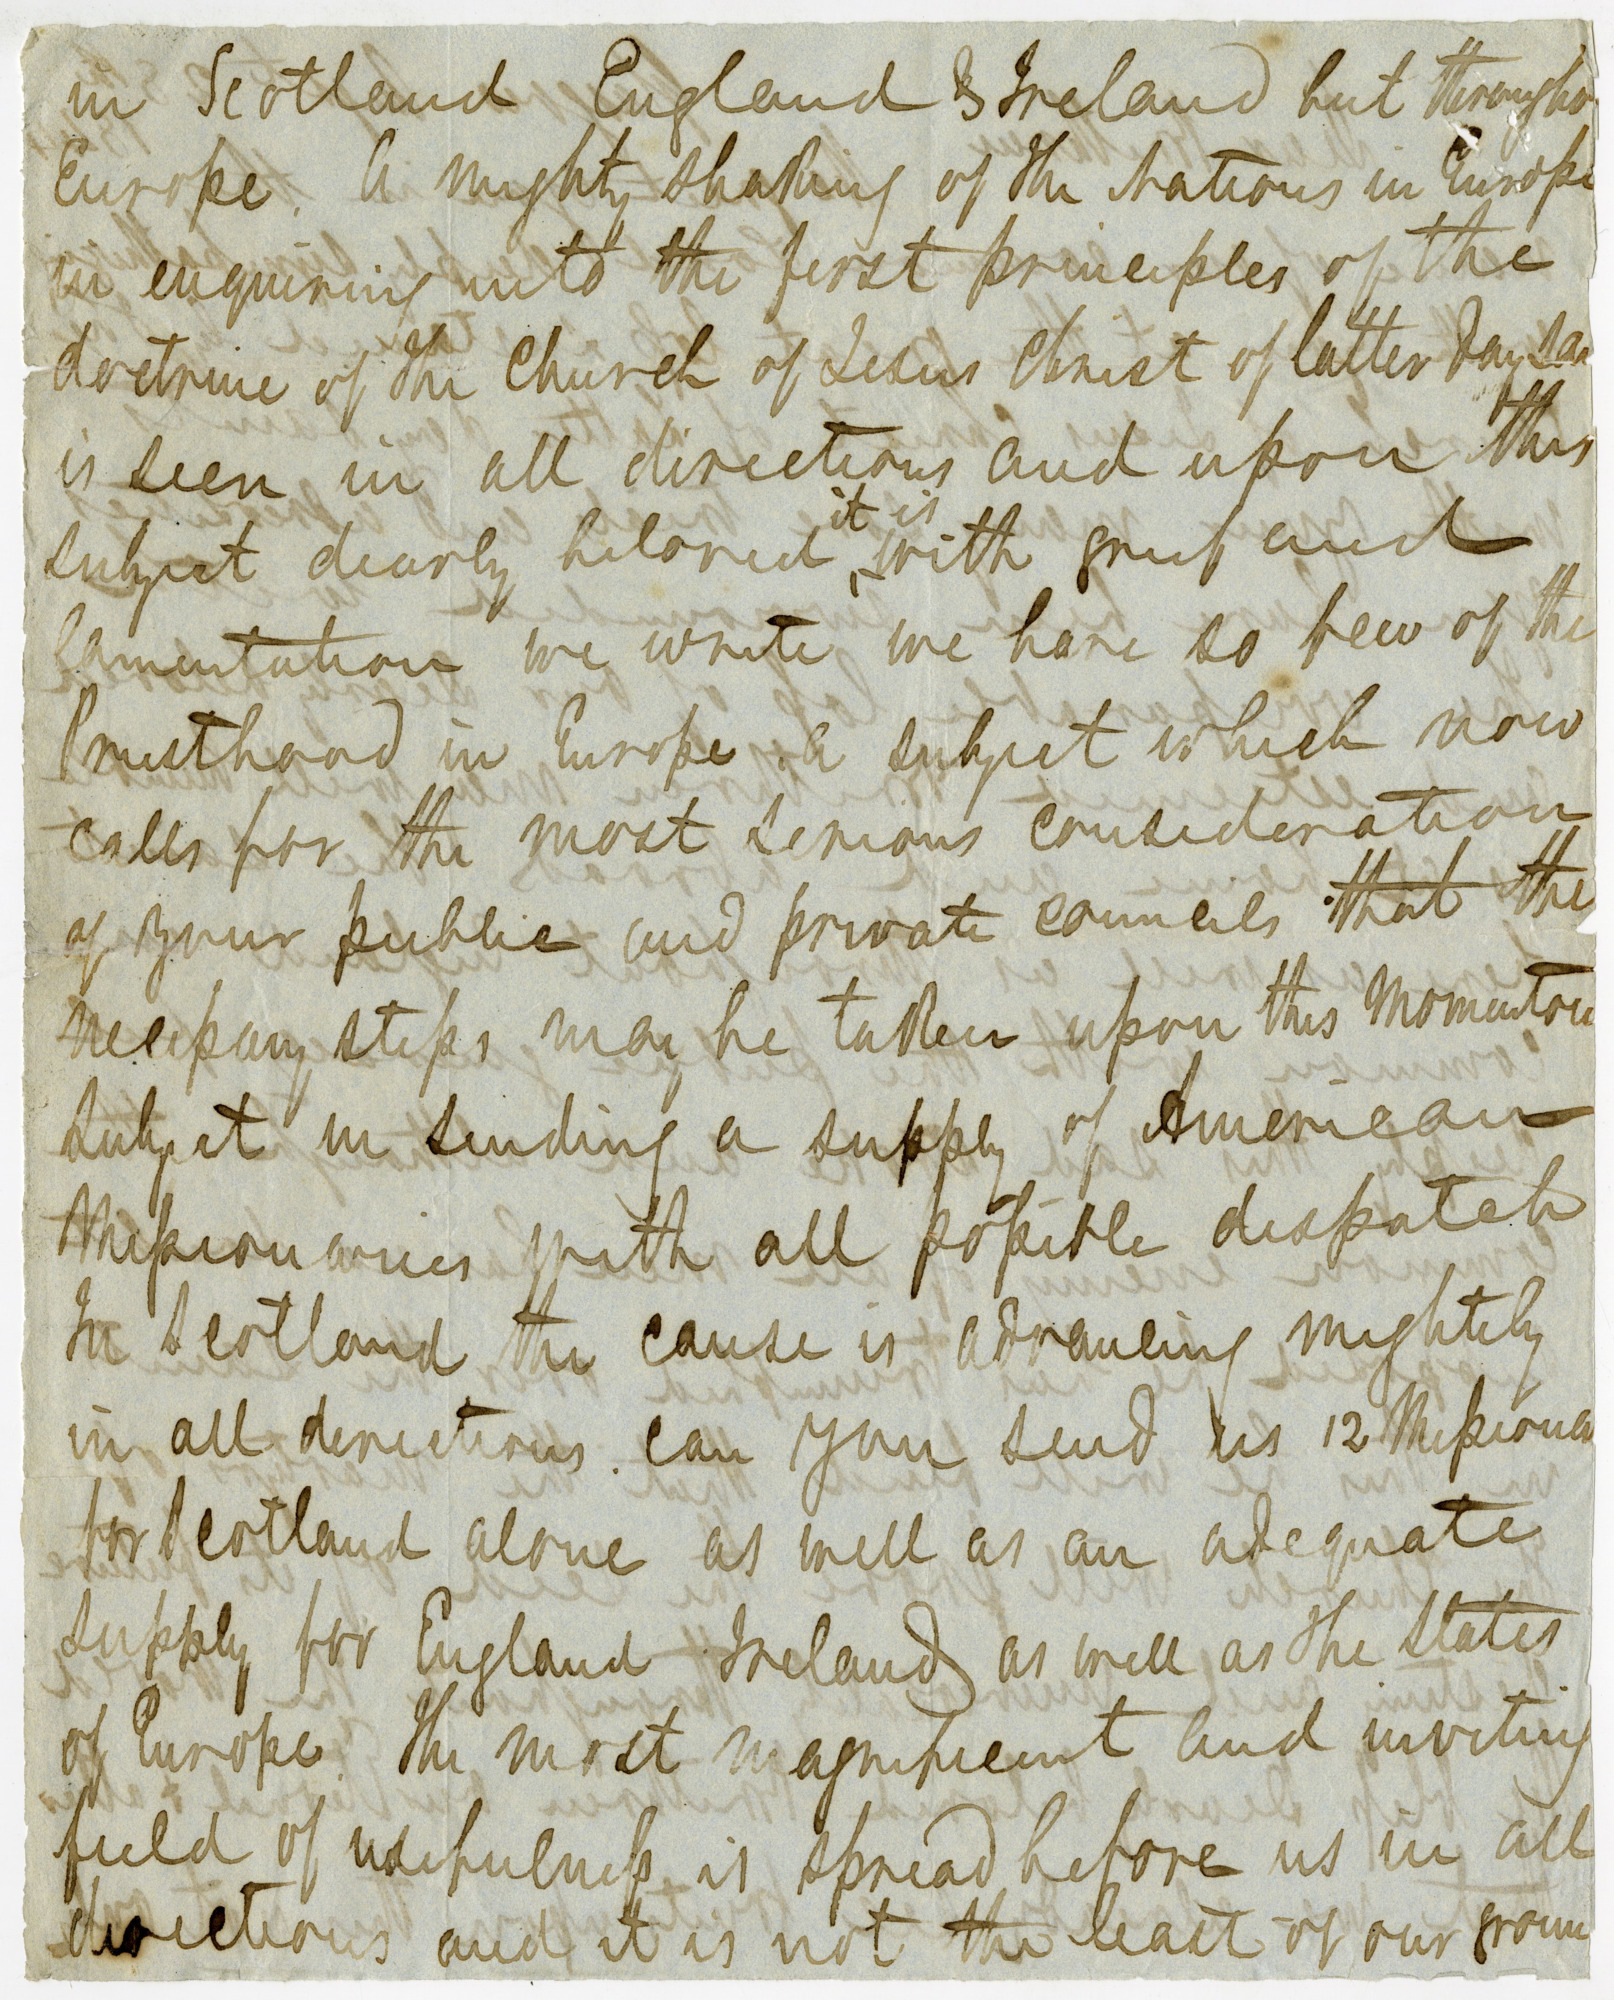 in Scotland England & Ireland but througho
Europe. A mighty shaking of the Nations in Europe
in enquiring into the first principles of the
doctrine of the Church of Jesus Christ of latter Day Sa
is seen in all directions and upon this
subject dearly beloved it is with grief and
lamentation we write we have so few of the
Priesthood in Europe. a subject which now
calls for the most serious consideration
of your public and private councils that the
necessary steps may be taken upon this Momentou
subject in sending a supply of American
Missionaries with all possible dispatch
In Scotland the cause is advancing mightily
in all directions. can you send us 12 Missiona
for Scotland alone as well as an adequate
supply for England Ireland as well as the States
of Europe. The most magnificent and inviting
field of usefulness is spread before us in all
directions and it is not the least of our groun